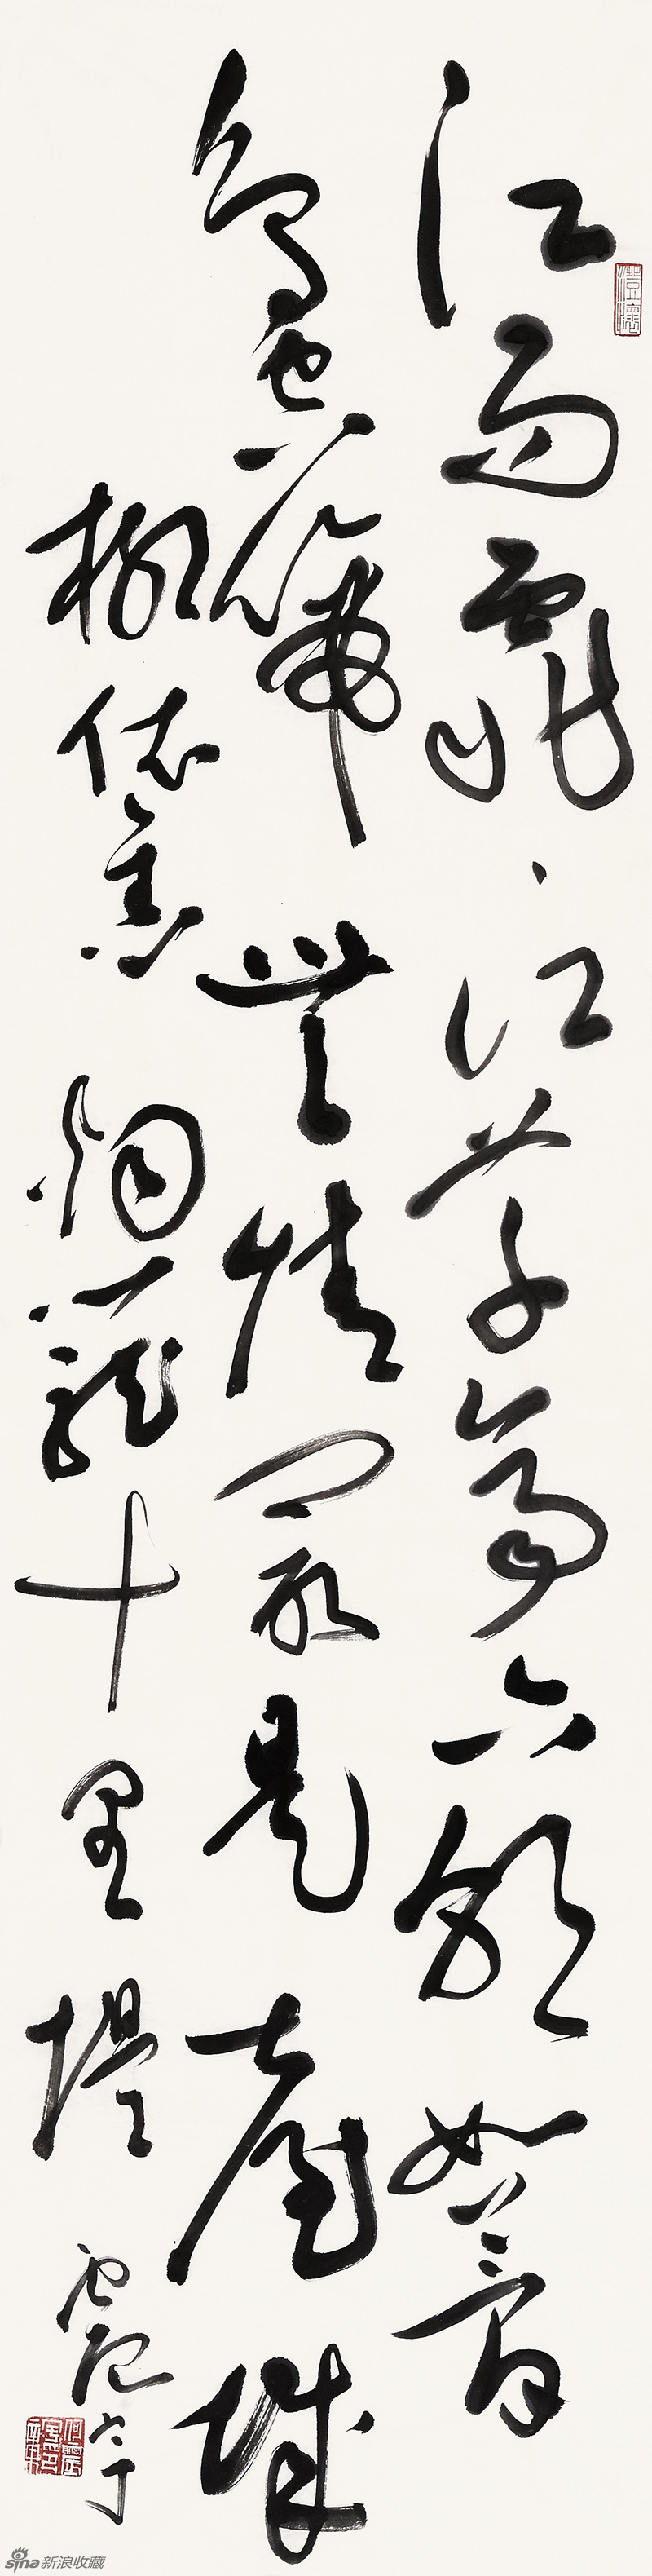 江雨霏霏江草齐六朝如梦
鸟空啼无情最是台城
柳依旧烟笼十里堤
澄怀
sina新浪收藏